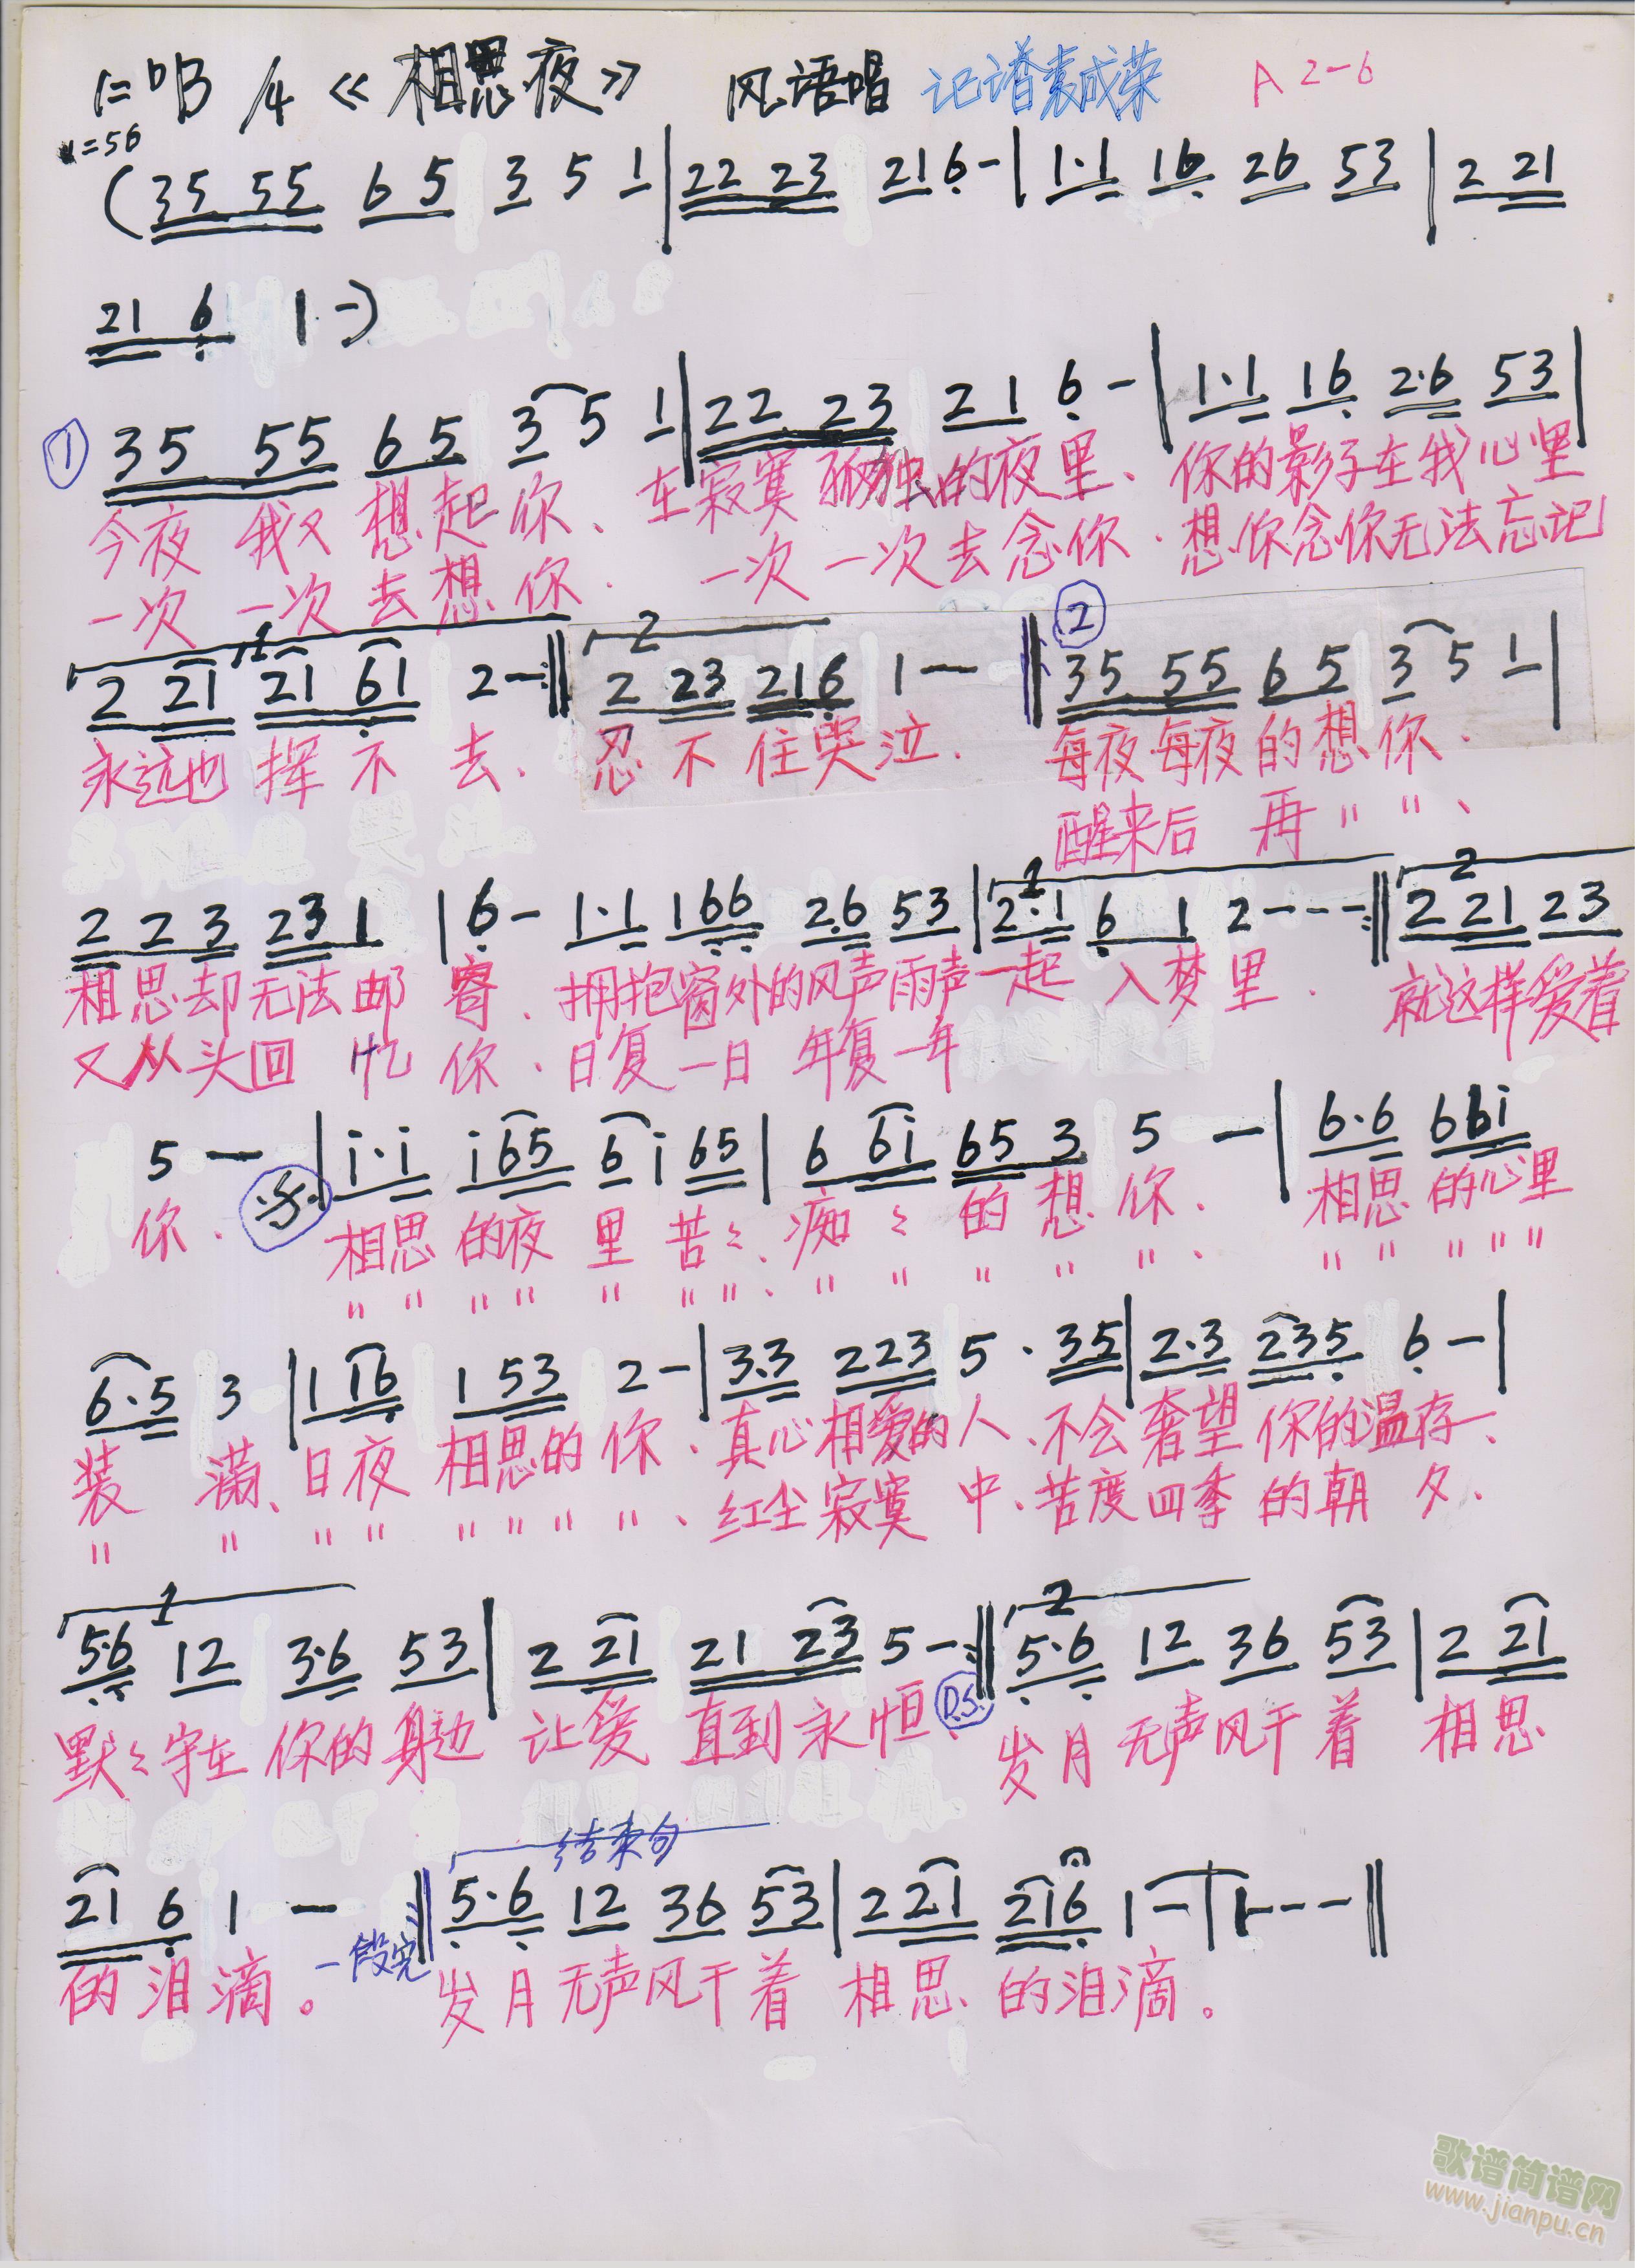 1=bB /4 《相思夜》 风语唱 记谱袁成荣 A 2-6
=56
(35 55 65 3 5 1-|22 23 21 6-|1·1 16 26 53|2 21
21 6 1 -)
① 35 55 65 3 5 1-|22 23 21 6-|1·1 16 2·6 53|
今夜 我又 想起你、在寂寞孤独的夜里、你的影子在我心里
一次 一次去想你. 一次一次去念你.想你念你无法忘记
1 2 ②
2 21 21 61 2-:‖ 2 23 216 1 — ‖ 35 55 65 3 5 1-|
永远也 挥不 去、 忍不住哭泣. 每夜每夜的想你.
醒来后 再 〃 〃、
1 2
2 2 3 23 1 |6- 1·1 166 2·6 53|2·1 6 1 2---:‖2 21 23
相思却无法邮 寄、拥抱窗外的风声雨声一起 入梦里. 就这样爱着
又从头回 忆 你、日复一日 年复一年
5 — |i·i i65 6i 65|6 6i 65 3 5 —|6·6 66i
你. 相思 的夜 里 苦〻、痴〻 的想你. 相思的心里
〃 〃 〃 〃 〃 〃 〃、〃 〃 〃 〃 〃、 〃 〃 〃 〃 〃
6·5 3 |1 16 1 53 2-|3·3 223 5 · 35|2·3 235 6-|
装 满、日夜 相思的你、真心相爱的人、不会奢望 你的温存、
〃 〃 〃 〃 〃 〃 〃 〃、红尘寂寞 中、苦度四季 的朝 夕、
1 2
5·6 12 3·6 53|2 21 21 23 5-:‖5·6 12 36 53|2 21
默〻守在 你的身边 让爱 直到永恒、 D.S. 岁月无声风干着 相思
结束句
21 6 1 — ‖5·6 12 36 53|2 21 216 1-|1---‖
的泪滴。一段完 岁月无声风干着 相思 的泪滴。
歌谱简谱网
www.jianpu.cn